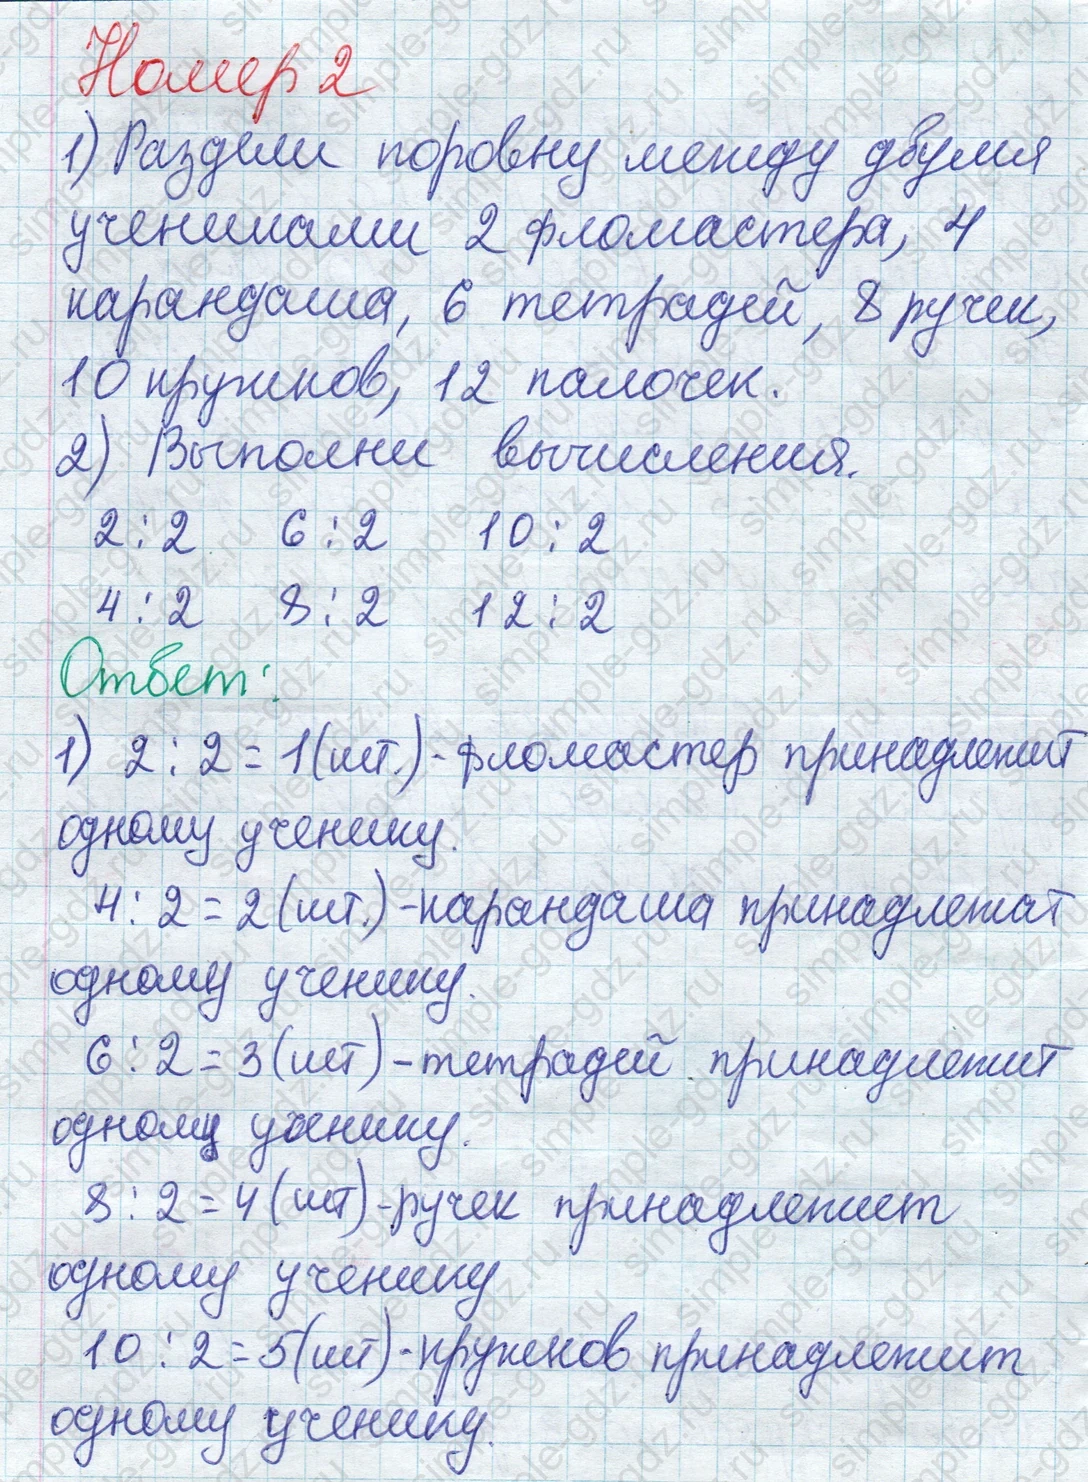 Номер 2
1) Раздели поровну между двумя
учениками 2 фломастера, 4
карандаша, 6 тетрадей, 8 ручек,
10 кружков, 12 палочек.
2) Выполни вычисления.
2 : 2 6 : 2 10 : 2
4 : 2 8 : 2 12 : 2
Ответ:
1) 2 : 2 = 1 (шт.) - фломастер принадлежит
одному ученику.
4 : 2 = 2 (шт.) - карандаша принадлежат
одному ученику.
6 : 2 = 3 (шт) - тетрадей принадлежит
одному ученику.
8 : 2 = 4 (шт) - ручек принадлежит
одному ученику
10 : 2 = 5 (шт) - кружков принадлежит
одному ученику.
simple-gdz.ru